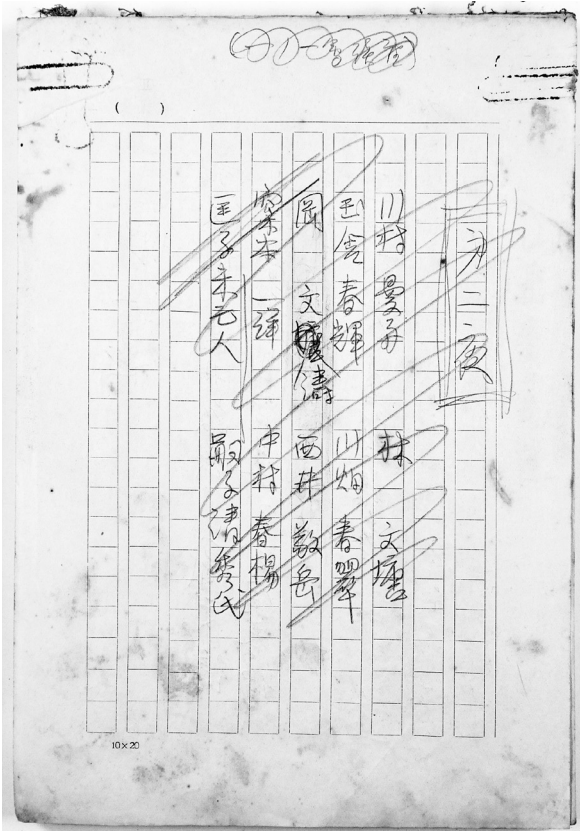 第二夜
川村 曼舟
林 文塘
玉舎 春輝
川畑 春翠
岡 文濤
西井 敬岳
寒本 一洋
中村 春楊
匡子未亡人
嗣子清秀氏
( )
10×20